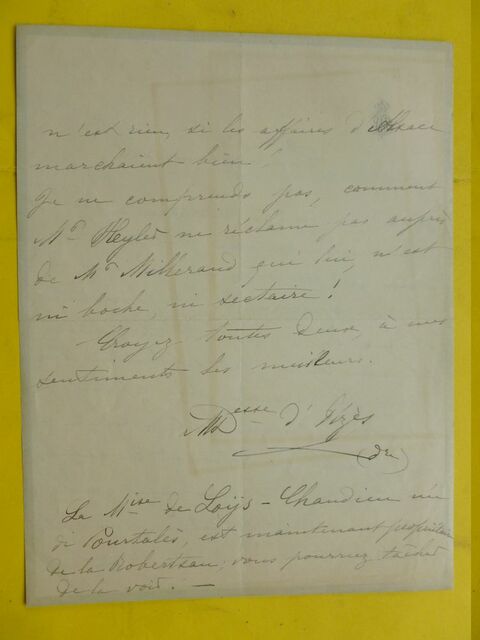 n'est rien, si les affaires d'Alsace
marchaient bien!
Je ne comprends pas, comment
Mr Heyler ne réclame pas auprès
de Mr Millerand qui lui, n'est
ni boche, ni sectaire!
Croyez toutes deux, à mes
sentiments les meilleurs.
Desse d'Uzès
(dre)
La Mise de Loÿs-Chandieu née
de Pourtalès, est maintenant propriétaire
de la Robertsau; vous pourriez tâcher
de la voir. —